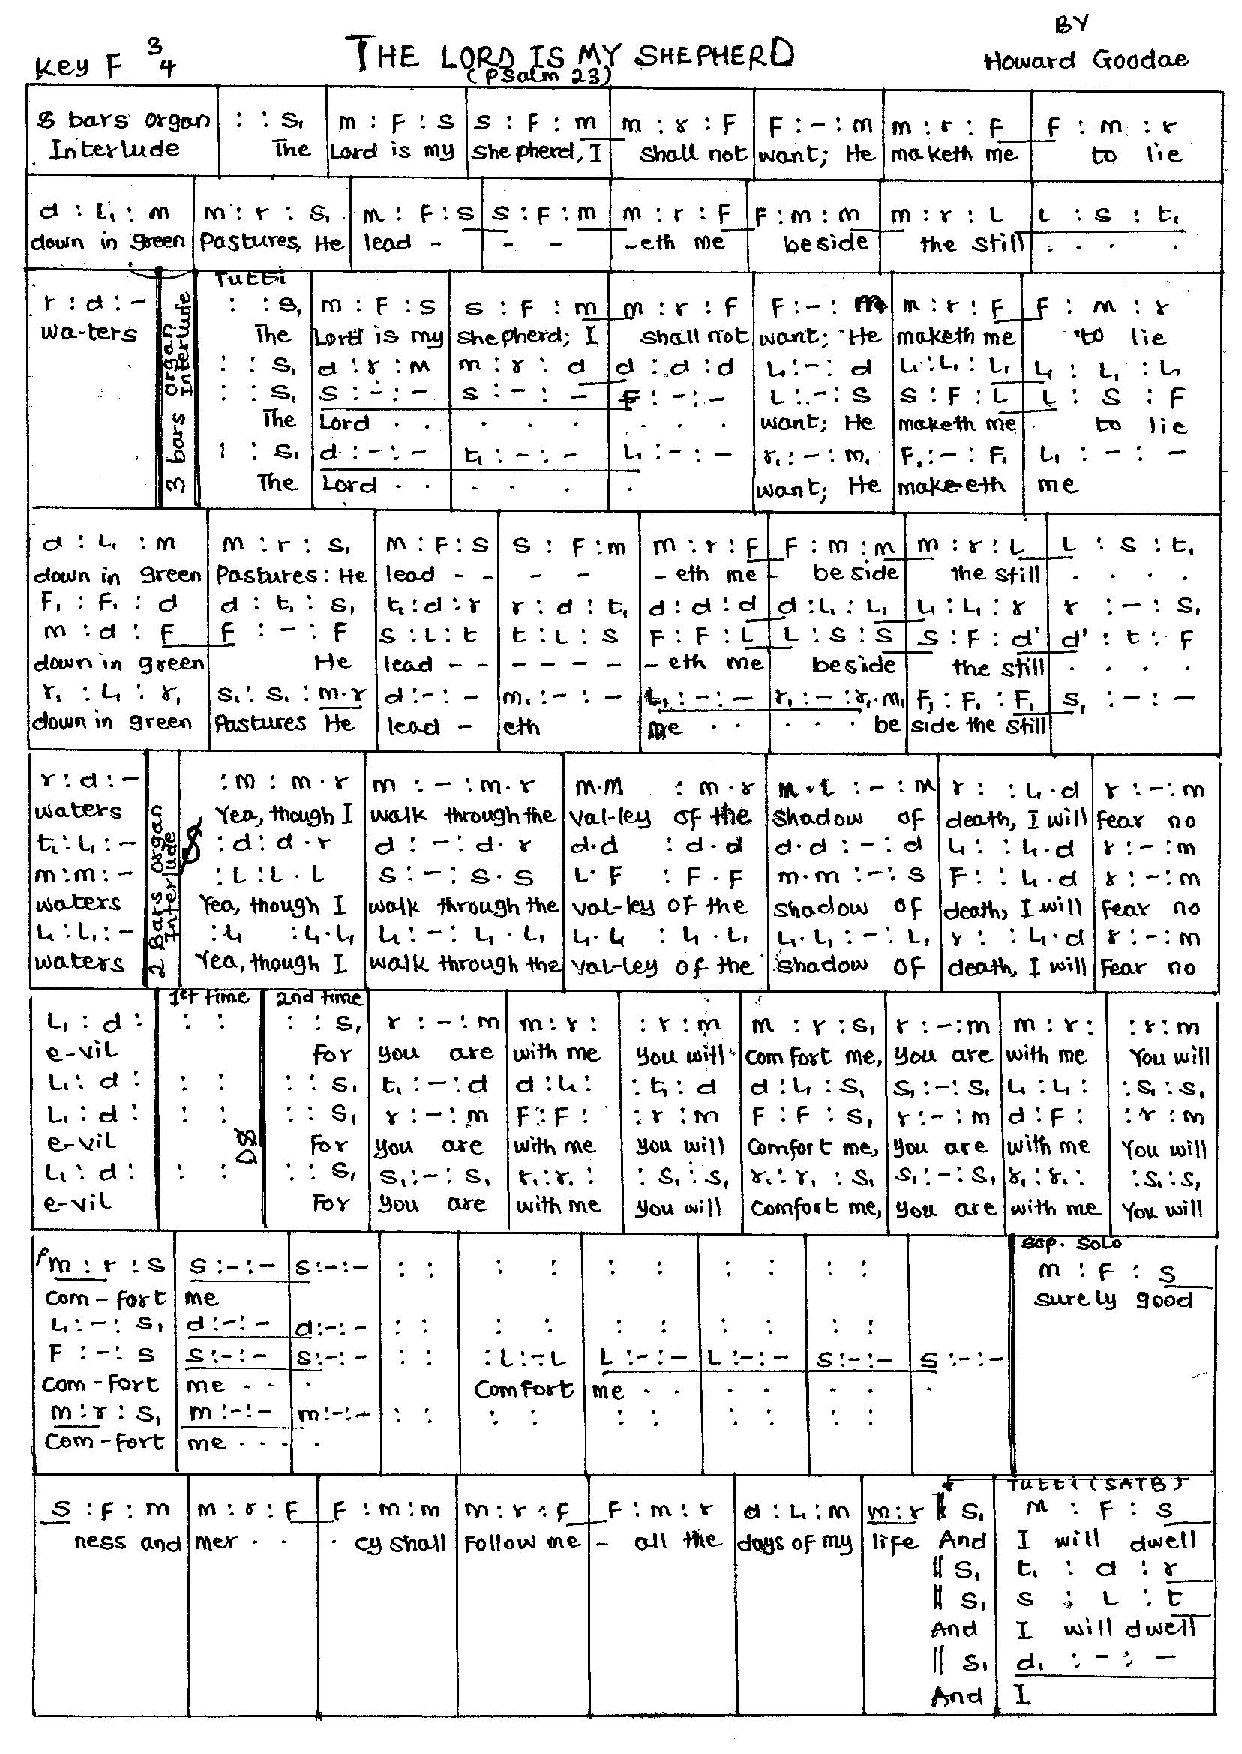 BY
THE LORD IS MY SHEPHERD
Key F 3/4
(Psalm 23)
Howard Goodae
8 bars organ : : s, m : F : s s : F : m m : r : F F : - : m m : r : F F : m : r
Interlude The Lord is my shepherd, I shall not want; He maketh me to lie
d : L, : m m : r : s, m : F : s s : F : m m : r : F F : m : m m : r : L L : s : t,
down in green Pastures, He lead - - - -eth me beside the still . . . .
Tutti
r : d : - : : s, m : F : s s : F : m m : r : F F : - : m m : r : F F : m : r
wa-ters 3 bars organ Interlude The Lord is my shepherd; I shall not want; He maketh me to lie
: : s, d : r : m m : r : d d : d : d L, : - : d L, : L, : L, L, : L, : L,
: : s, s : - : - s : - : - F : - : - L : - : s s : F : L L : s : F
The Lord . . . . . . . want; He maketh me to lie
: : s, d : - : - t, : - : - L, : - : - r, : - : m, F, : - : F, L, : - : -
The Lord . . . . . . want; He make-eth me
d : L, : m m : r : s, m : F : s s : F : m m : r : F F : m : m m : r : L L : s : t,
down in green Pastures: He lead - - - - - eth me - beside the still . . . .
F, : F, : d d : t, : s, t, : d : r r : d : t, d : d : d d : L, : L, L, : L, : r r : - : s,
m : d : F F : - : F s : L : t t : L : s F : F : L L : s : s s : F : d' d' : t : F
down in green He lead - - - - - - - - eth me beside the still . . . .
r, : L, : r, s, : s, : m . r d : - : - m, : - : - L, : - : - r, : - : r, . m, F, : F, : F, s, : - : -
down in green Pastures He lead - eth me . . . . . be side the still
r : d : - : m : m . r m : - : m . r m . m : m . r m . t : - : m r : : L, . d r : - : m
waters 2 Bars Organ Interlude Yea, though I walk through the val-ley of the shadow of death, I will fear no
t, : L, : - : d : d . r d : - : d . r d . d : d . d d . d : - : d L, : : L, . d r : - : m
m : m : - : L : L . L s : - : s . s L . F : F . F m . m : - : s F : : L, . d r : - : m
waters Yea, though I walk through the val-ley of the shadow of death, I will fear no
L, : L, : - : L, : L, . L, L, : - : L, . L, L, . L, : L, . L, L, . L, : - : L, r : : L, . d r : - : m
waters Yea, though I walk through the val-ley of the shadow of death, I will Fear no
1st time 2nd time
L, : d : : : : : s, r : - : m m : r : : r : m m : r : s, r : - : m m : r : : r : m
e-vil For you are with me you will comfort me, you are with me You will
L, : d : : : : : s, t, : - : d d : L, : : t, : d d : L, : s, s, : - : s, L, : L, : : s, : s,
L, : d : : : : : s, r : - : m F : F : : r : m F : F : s, r : - : m d : F : : r : m
e-vil D.S For you are with me you will Comfort me, you are with me You will
L, : d : : : : : s, s, : - : s, r, : r, : : s, : s, r, : r, : s, s, : - : s, r, : r, : : s, : s,
e-vil For you are with me you will Comfort me, you are with me You will
Sop. Solo
m : r : s s : - : - s : - : - : : : : : : : : : : m : F : s
Com-fort me surely good
L, : - : s, d : - : - d : - : - : : : : : : : : : :
F : - : s s : - : - s : - : - : : : L : - L L : - : - L : - : - s : - : - s : - : -
Com-fort me - - . Comfort me . . . . . .
m : r : s, m : - : - m : - : - : : : : : : : : : :
Com-fort me - - - .
Tutti (SATB)
s : F : m m : r : F F : m : m m : r : F F : m : r d : L, : m m : r || s, m : F : s
ness and mer . . . cy shall Follow me - all the days of my life And I will dwell
|| s, t, : d : r
|| s, s : L : t
And I will dwell
|| s, d, : - : -
And I